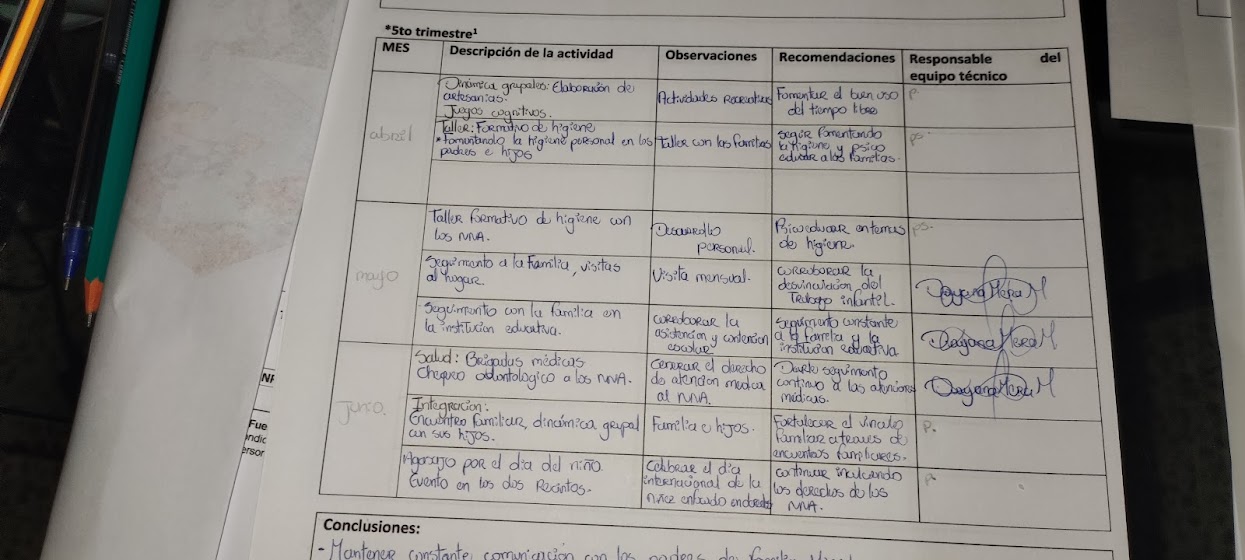 *5to trimestre¹
MES
Descripción de la actividad
Observaciones
Recomendaciones
Responsable del
equipo técnico
abril
Dinámica grupales: Elaboración de
artesanias.
Juegos cognitivos.
Actividades Recreativas
Fomentar el buen uso
del tiempo libre
P.
Taller: Formativo de higiene
*fomentando la higiene personal en los
padres e hijos
Taller con las familias
seguir fomentando
la higiene y psico
educar a las familias.
ps.
mayo
Taller formativo de higiene con
los NNA.
Desarrollo
personal.
en temas
de higiene.
ps.
Seguimiento a la Familia, visitas
al hogar.
Visita mensual.
corroborar la
desvinculacion del
Trabajo infantil.
Dayana Mera M
Seguimiento con la familia en
la institucion educativa.
corroborar la
asistencia y contencion
escolar
seguimiento constante
a la familia y la
institucion educativa
Dayana Mera M
junio.
Salud: Brigadas médicas
Chequeo odontologico a los NNA.
Generar el derecho
de atencion medica
al NNA.
Darle seguimiento
continuo a las atenciones
médicas.
Dayana Mera M
Integracion:
Encuentro familiar, dinámica grupal
con sus hijos.
Familia e hijos.
Fortalecer el vinculo
familiar a traves de
encuentros familiares.
P.
Agasajo por el dia del niño.
Evento en los dos Recintos.
Celebrar el dia
internacional de la
niñez enfocado en derechos
continuar inculcando
los derechos de los
NNA.
P.
Fue
ndic
ersor
Conclusiones:
- Mantener constante comunicación con los padres de familia